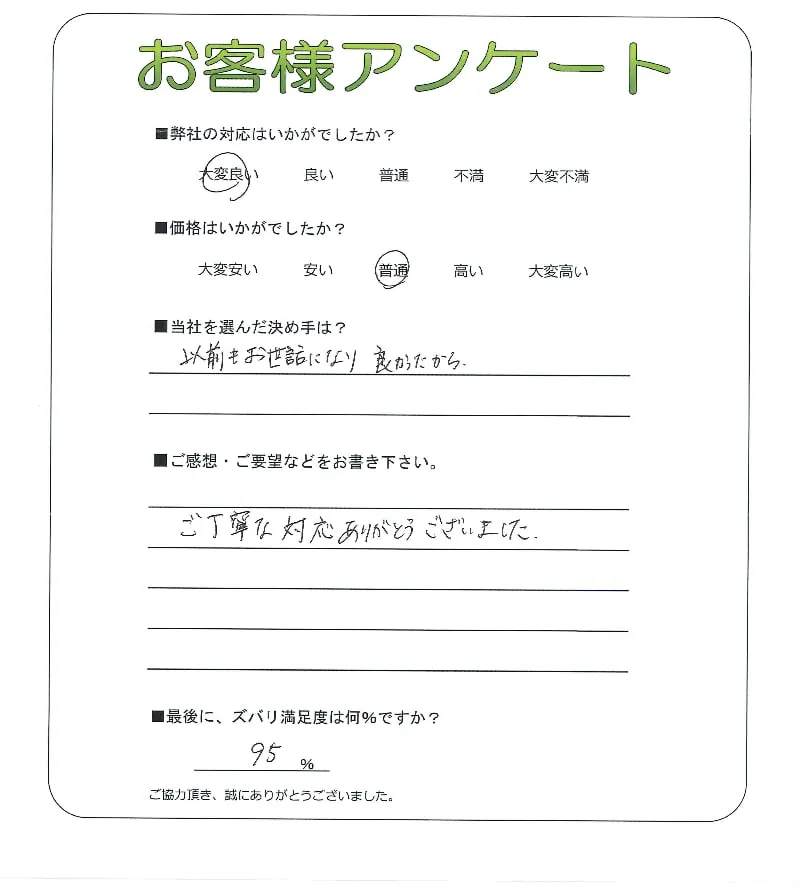 お客様アンケート
■弊社の対応はいかがでしたか？
大変良い 良い 普通 不満 大変不満
■価格はいかがでしたか？
大変安い 安い 普通 高い 大変高い
■当社を選んだ決め手は？
以前もお世話になり 良かったから.
■ご感想・ご要望などをお書き下さい。
ご丁寧な対応ありがとうございました.
■最後に、ズバリ満足度は何％ですか？
95 %
ご協力頂き、誠にありがとうございました。